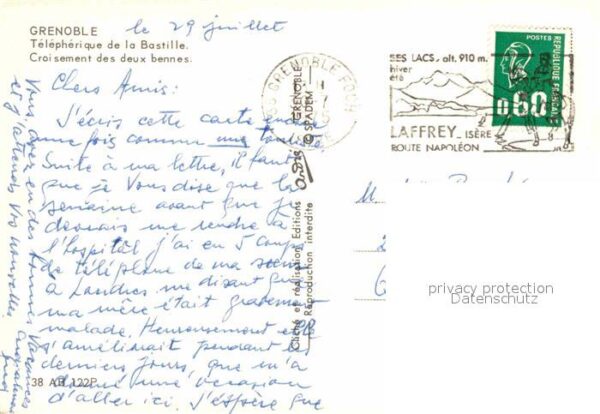 GRENOBLE
Téléphérique de la Bastille.
Croisement des deux bennes.
le 29 juillet
Chers Amis:
J'écris cette carte
une fois comme une touriste
Suite à ma lettre, il faut
que je Vous dise que la
semaine avant que je
devais me rendre à
l'hospital j'ai eu 5 coups
de téléphone de ma
à Londres me disant que
ma mère était gravement
malade. Heureusement elle
s'améliorait pendant les
derniers jours, que m'a
donné une occasion
d'aller ici. J'espère que
Vous avez eu des bonnes Vacances
et j'attends Vos nouvelles
38 AB 122P
Cliché et réalisation Editions
Reproduction interdite
GRENOBLE
© SPADEM
GRENOBLE
SES LACS, alt. 910 m.
hiver
été
LAFFREY - ISÈRE
ROUTE NAPOLÉON
POSTES
RÉPUBLIQUE FRANÇAISE
0,60
M
privacy protection
Datenschutz